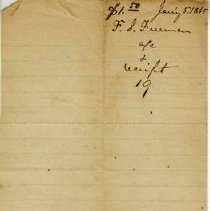 $1.50 Jany 5 1865
F. S. Freeman
a/c
&
receipt
19